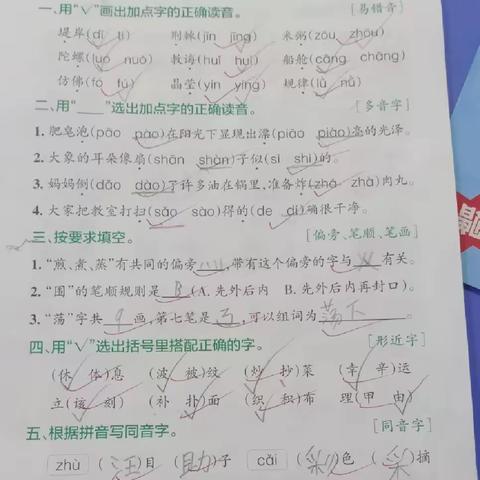 一、用“√”画出加点字的正确读音。 [易错音]
堤岸(dī tí) 荆棘(jīn jīng) 米粥(zōu zhōu)
陀螺(luó nuó) 教诲(huǐ huì) 船舱(cāng chāng)
仿佛(fó fú) 晶莹(yín yíng) 规律(lǜ nǜ)
二、用“___”选出加点字的正确读音。 [多音字]
1. 肥皂泡(pāo pào)在阳光下显现出漂(piāo piào)亮的光泽。
2. 大象的耳朵像扇(shān shàn)子似(sì shì)的。
3. 妈妈倒(dǎo dào)了许多油在锅里,准备炸(zhá zhà)肉丸。
4. 大家把教室打扫(sǎo sào)得的(de dí)确很干净。
三、按要求填空。 [偏旁、笔顺、笔画]
1. “煎、煮、蒸”有共同的偏旁灬,带有这个偏旁的字与火有关。
2. “围”的笔顺规则是 B (A. 先外后内 B. 先外后内再封口)。
3. “荡”字共 9 画,第七笔是,可以组词为荡下。
四、用“√”选出括号里搭配正确的字。 [形近字]
(休 体)息 (波 被)纹 (炒 抄)菜 (幸 辛)运
立(该 刻) (补 扑)面 (织 积)布 理(甲 由)
五、根据拼音写同音字。 [同音字]
zhù (注)目 (助)子 cǎi (彩)色 (采)摘